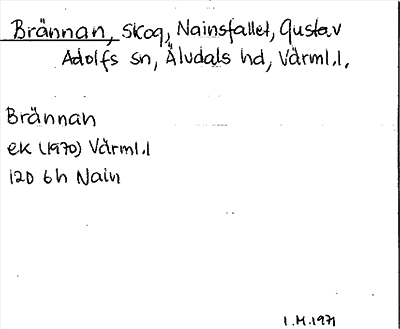 Brännan, skog, Nainsfallet, Gustav
Adolfs sn, Älvdals hd, Värml.l.
Brännan
ek (1970) Värml.l
12D 6h Nain
I.M.1971